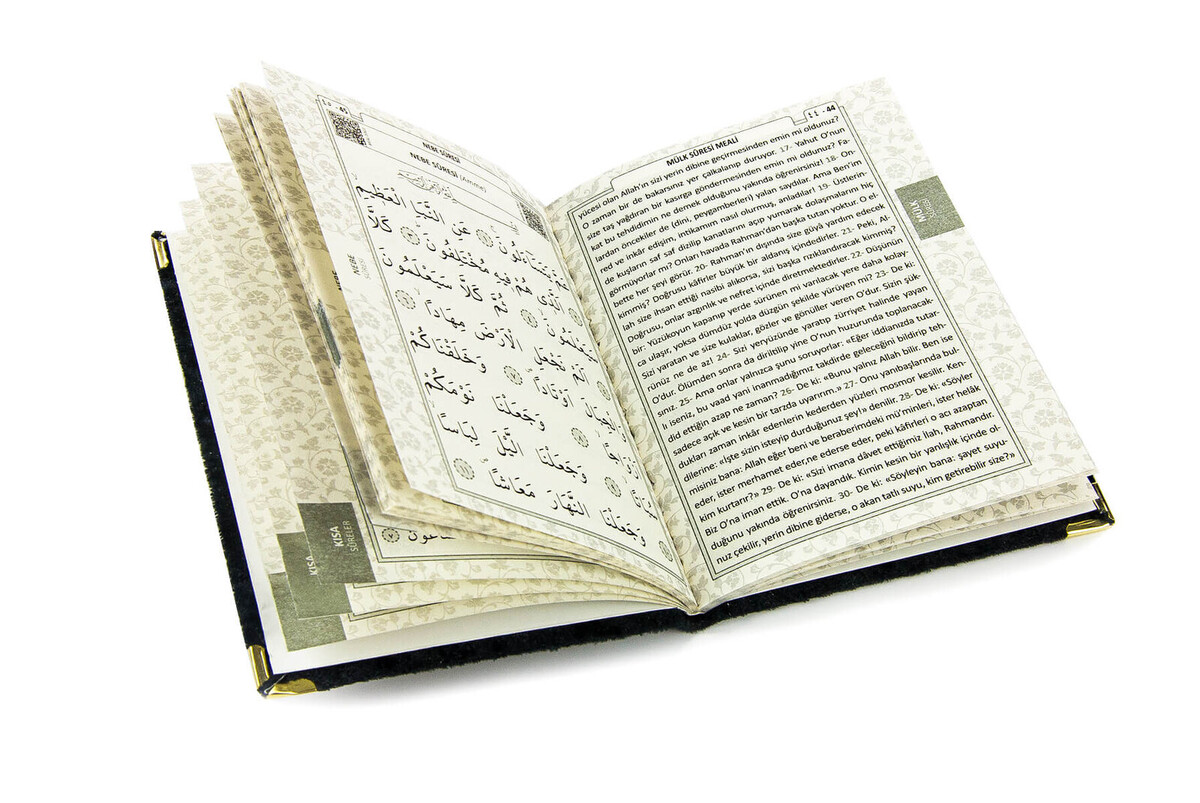 ٤٤ - 44
MÜLK SÛRESİ MEALİ
yücesi olan Allah'ın sizi yerin dibine geçirmesinden emin mi oldunuz?
O zaman bir de bakarsınız yer çalkalanıp duruyor. 17- Yahut O'nun
size taş yağdıran bir kasırga göndermesinden emin mi oldunuz? Fa-
kat bu tehdidimin ne demek olduğunu yakında öğrenirsiniz! 18- On-
dan öncekiler de (dini, peygamberleri) yalan saydılar. Ama Ben'im
red ve inkâr edişim, intikamım nasıl olurmuş, anladılar! 19- Üstlerin-
de kuşların saf saf dizilip kanatlarını açıp yumarak dolaşmalarını hiç
görmüyorlar mı? Onları havada Rahman'dan başka tutan yoktur. O el-
bette her şeyi görür. 20- Rahman'ın dışında size gûyâ yardım edecek
kimmiş? Doğrusu kâfirler büyük bir aldanış içindedirler. 21- Peki, Al-
lah size ihsan ettiği nasibi alıkorsa, sizi başka rızıklandıracak kimmiş?
Doğrusu, onlar azgınlık ve nefret içinde diretmektedirler. 22- Düşünün
bir: Yüzükoyun kapanıp yerde sürünen mi varılacak yere daha kolay-
ca ulaşır, yoksa dümdüz yolda düzgün şekilde yürüyen mi? 23- De ki:
Sizi yaratan ve size kulaklar, gözler ve gönüller veren O'dur. Sizin şük-
rünüz ne de az! 24- Sizi yeryüzünde yaratıp zürriyet halinde yayan
O'dur. Ölümden sonra da diriltilip yine O'nun huzurunda toplanacak-
sınız. 25- Ama onlar yalnızca şunu soruyorlar: «Eğer iddianızda tutar-
lı iseniz, bu vaad yani inanmadığımız takdirde geleceğini bildirip teh-
did ettiğin azap ne zaman? 26- De ki: «Bunu yalnız Allah bilir. Ben ise
sadece açık ve kesin bir tarzda uyarırım.» 27- Onu yanıbaşlarında bul-
dukları zaman inkâr edenlerin kederden yüzleri mosmor kesilir. Ken-
dilerine: «İşte sizin isteyip durduğunuz şey!» denilir. 28- De ki: «Söyler
misiniz bana: Allah eğer beni ve beraberimdeki mü'minleri, ister helâk
eder, ister merhamet eder,ne ederse eder, peki kâfirleri o acı azaptan
kim kurtarır?» 29- De ki: «Sizi imana dâvet ettiğimiz ilah, Rahmandır.
Biz O'na iman ettik. O'na dayandık. Kimin kesin bir yanlışlık içinde ol-
duğunu yakında öğrenirsiniz. 30- De ki: «Söyleyin bana: şayet suyu-
nuz çekilir, yerin dibine giderse, o akan tatlı suyu, kim getirebilir size?»
MÜLK
SÛRESİ
٤٥ - 45
NEBE SÛRESİ
NEBE SÛRESİ (Amme)
عَمَّ يَتَسَٓاءَلُونَ ﴿١﴾ عَنِ النَّبَأِ الْعَظِيمِ
الَّذِي هُمْ فِيهِ مُخْتَلِفُونَ ﴿٣﴾ كَلَّا
سَيَعْلَمُونَ ﴿٤﴾ ثُمَّ كَلَّا سَيَعْلَمُونَ
اَلَمْ نَجْعَلِ الْاَرْضَ مِهَادًا
وَالْجِبَالَ اَوْتَادًا ﴿٧﴾ وَخَلَقْنَاكُمْ
اَزْوَاجًا ﴿٨﴾ وَجَعَلْنَا نَوْمَكُمْ
سُبَاتًا ﴿٩﴾ وَجَعَلْنَا الَّيْلَ لِبَاسًا
وَجَعَلْنَا النَّهَارَ مَعَاشًا
NEBE
KISA
SÛRELER
KISA